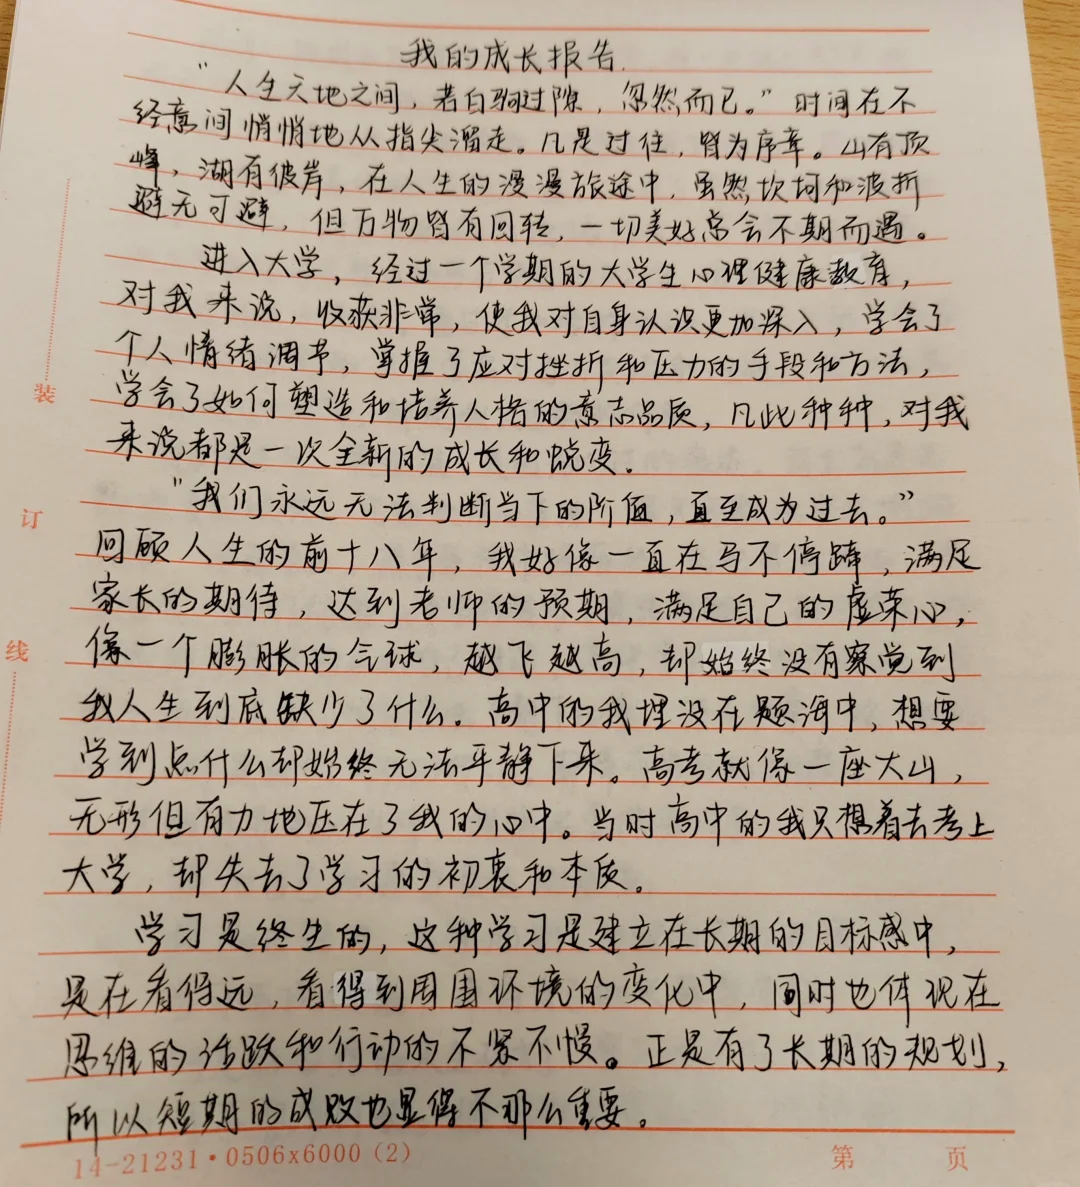 我的成长报告.
"人生天地之间，若白驹过隙，忽然而已。"时间在不
经意间悄悄地从指尖溜走。凡是过往，皆为序章。山有顶
峰，湖有彼岸，在人生的漫漫旅途中，虽然坎坷和波折
避无可避，但万物皆有回转，一切美好总会不期而遇。
进入大学，经过一个学期的大学生心理健康教育，
对我来说，收获非常，使我对自身认识更加深入，学会了
个人情绪调节，掌握了应对挫折和压力的手段和方法，
学会了如何塑造和培养人格的意志品质，凡此种种，对我
来说都是一次全新的成长和蜕变.
"我们永远无法判断当下的阶值，直至成为过去。"
回顾人生的前十八年，我好像一直在马不停蹄，满足
家长的期待，达到老师的预期，满足自己的虚荣心，
像一个膨胀的气球，越飞越高，却始终没有察觉到
我人生到底缺少了什么。高中的我埋没在题海中，想要
学到点什么却始终无法平静下来。高考就像一座大山，
无形但有力地压在了我的心中。当时高中的我只想着去考上
大学，却失去了学习的初衷和本质。
学习是终生的，这种学习是建立在长期的目标感中，
是在看得远，看得到周围环境的变化中，同时也体现在
思维的活跃和行动的不紧不慢。正是有了长期的规划，
所以短期的成败也显得不那么重要。
装
订
线
14-21231·0506x6000(2)
第 页